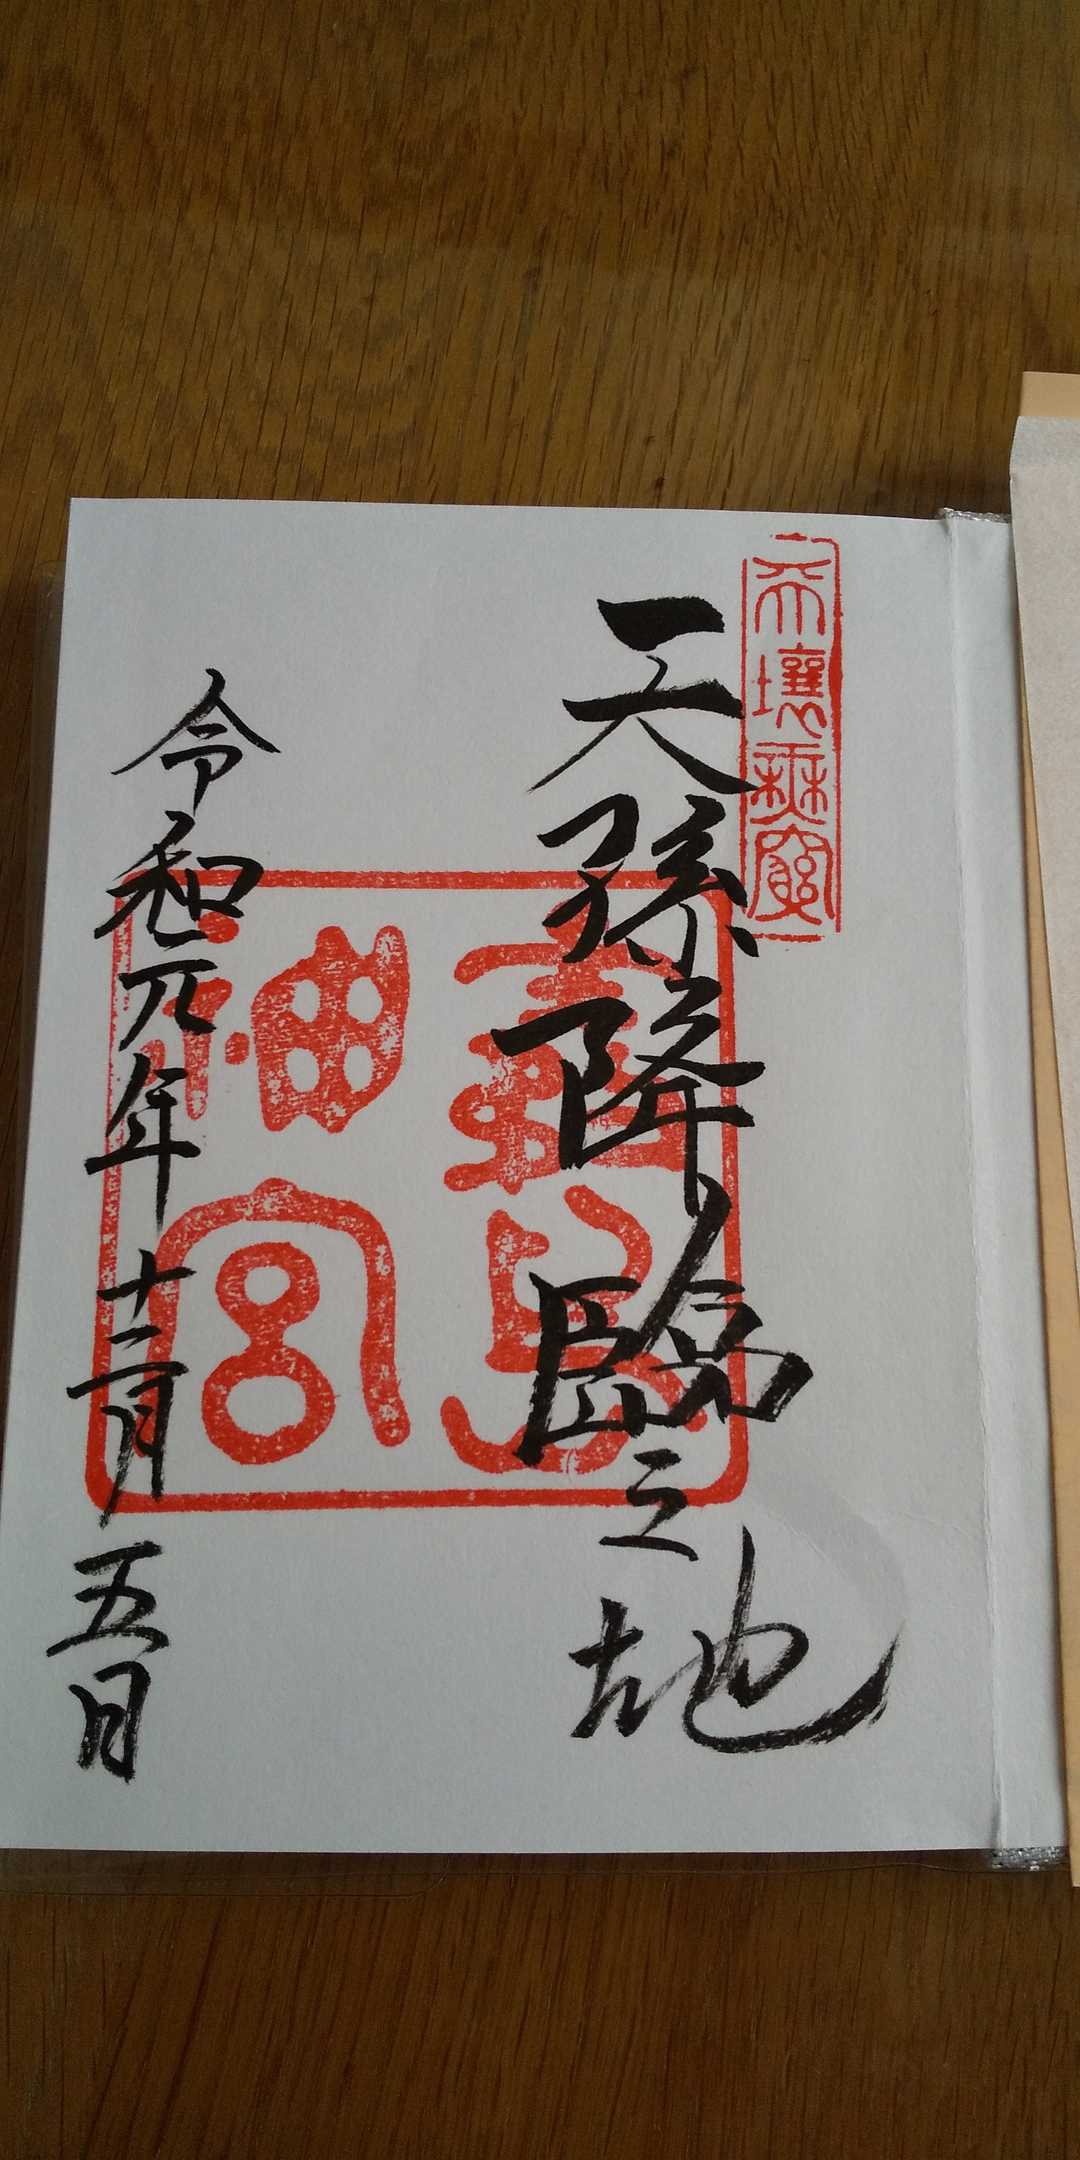 天孫降臨之地
霧島神宮
令和元年十二月五日